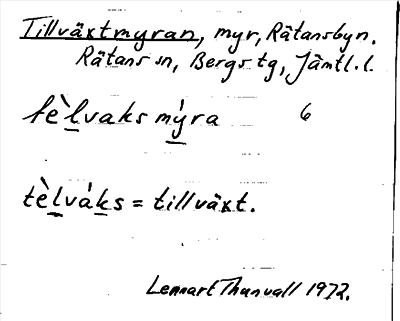 Tillväxtmyran, myr, Rätansbyn.
Rätans sn, Bergs tg, Jämtl. l.
tèlvaks mýra 6
tèlváks = tillväxt.
Lennart Thunvall 1972.